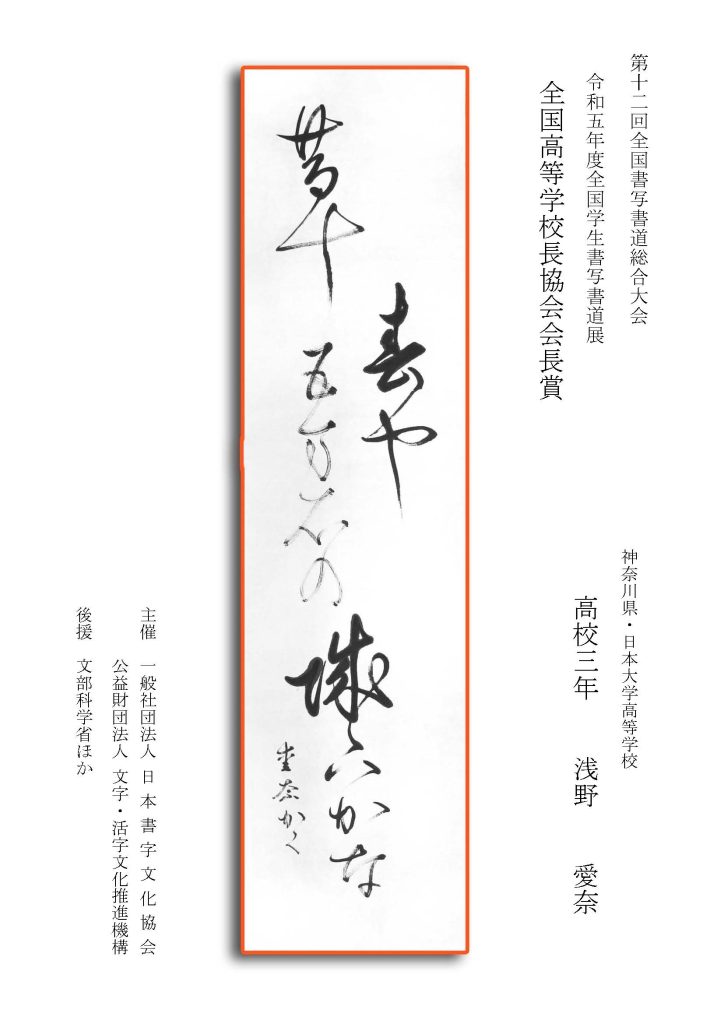 第十二回全国書写書道総合大会
令和五年度全国学生書写書道展
全国高等学校長協会会長賞
神奈川県・日本大学高等学校
高校三年　浅野　愛奈
春や
昔十
五万石の
城下かな
愛奈かく
主催　一般社団法人 日本書字文化協会
公益財団法人 文字・活字文化推進機構
後援　文部科学省ほか